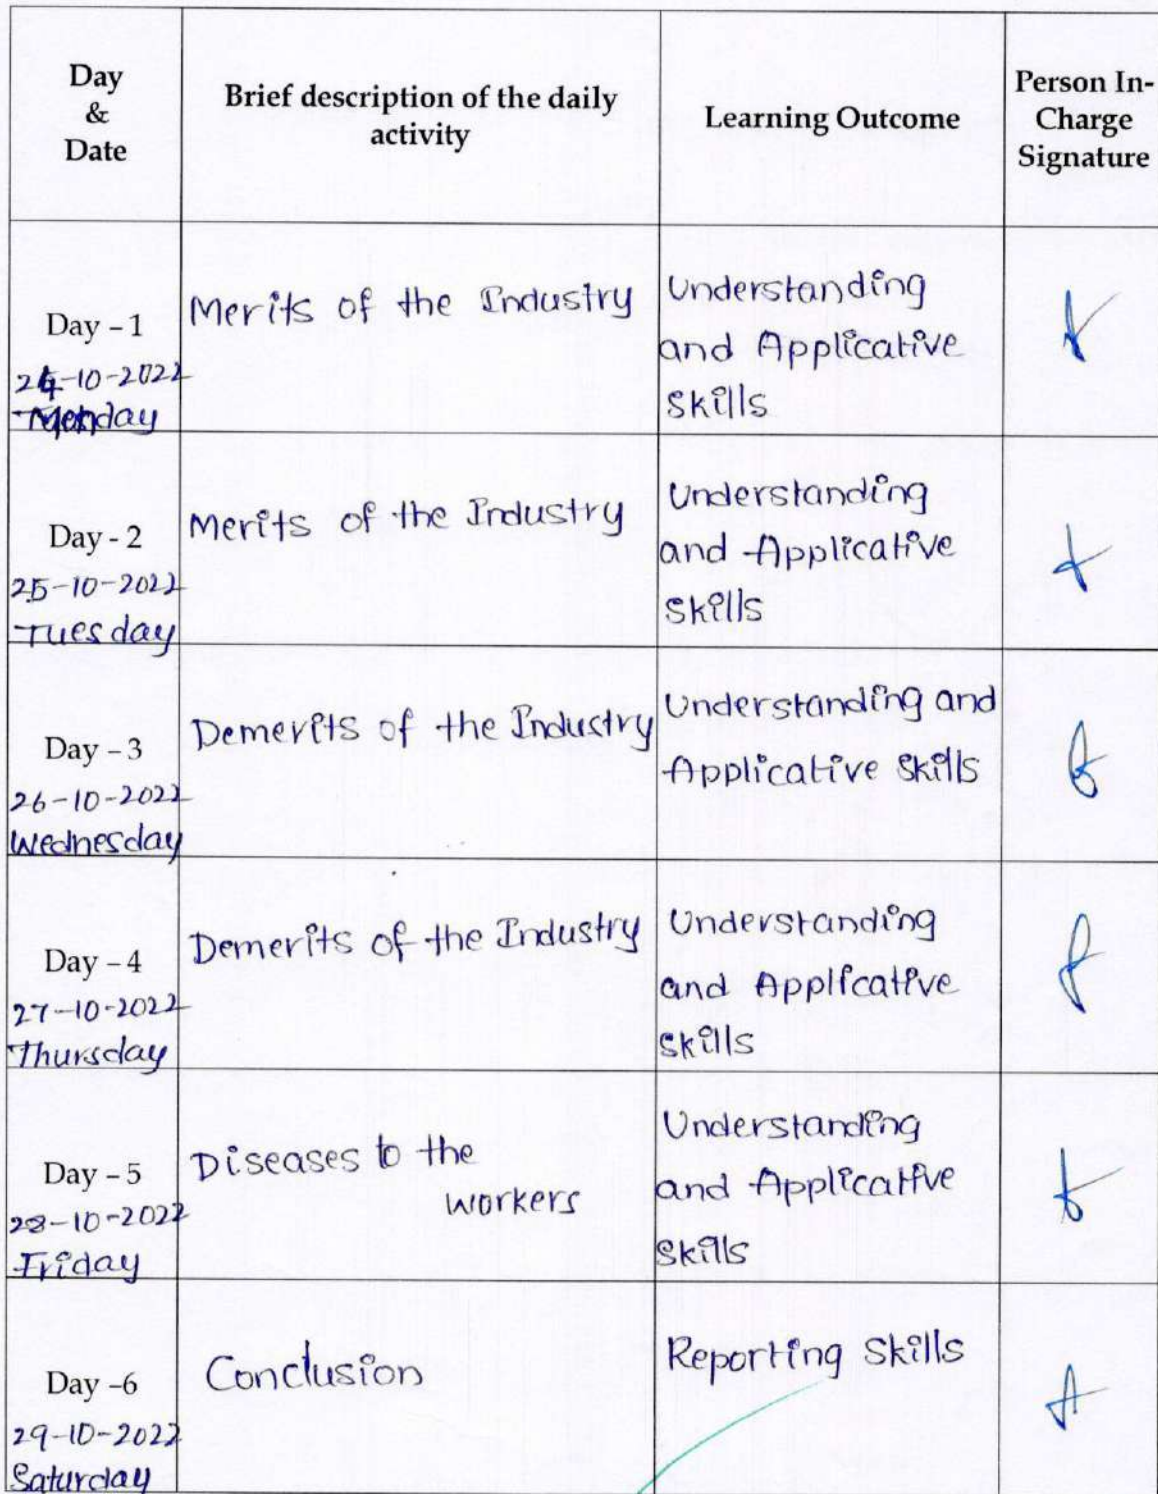 Day
&
Date
Brief description of the daily
activity
Learning Outcome
Person In-
Charge
Signature
Day – 1
24-10-2022
Monday
Merits of the Industry
Understanding
and Applicative
Skills
Day - 2
25-10-2022
Tuesday
Merits of the Industry
Understanding
and Applicative
Skills
Day – 3
26-10-2022
Wednesday
Demerits of the Industry
Understanding and
Applicative Skills
Day – 4
27-10-2022
Thursday
Demerits of the Industry
Understanding
and Applicative
Skills
Day – 5
28-10-2022
Friday
Diseases to the
workers
Understanding
and Applicative
Skills
Day –6
29-10-2022
Saturday
Conclusion
Reporting Skills